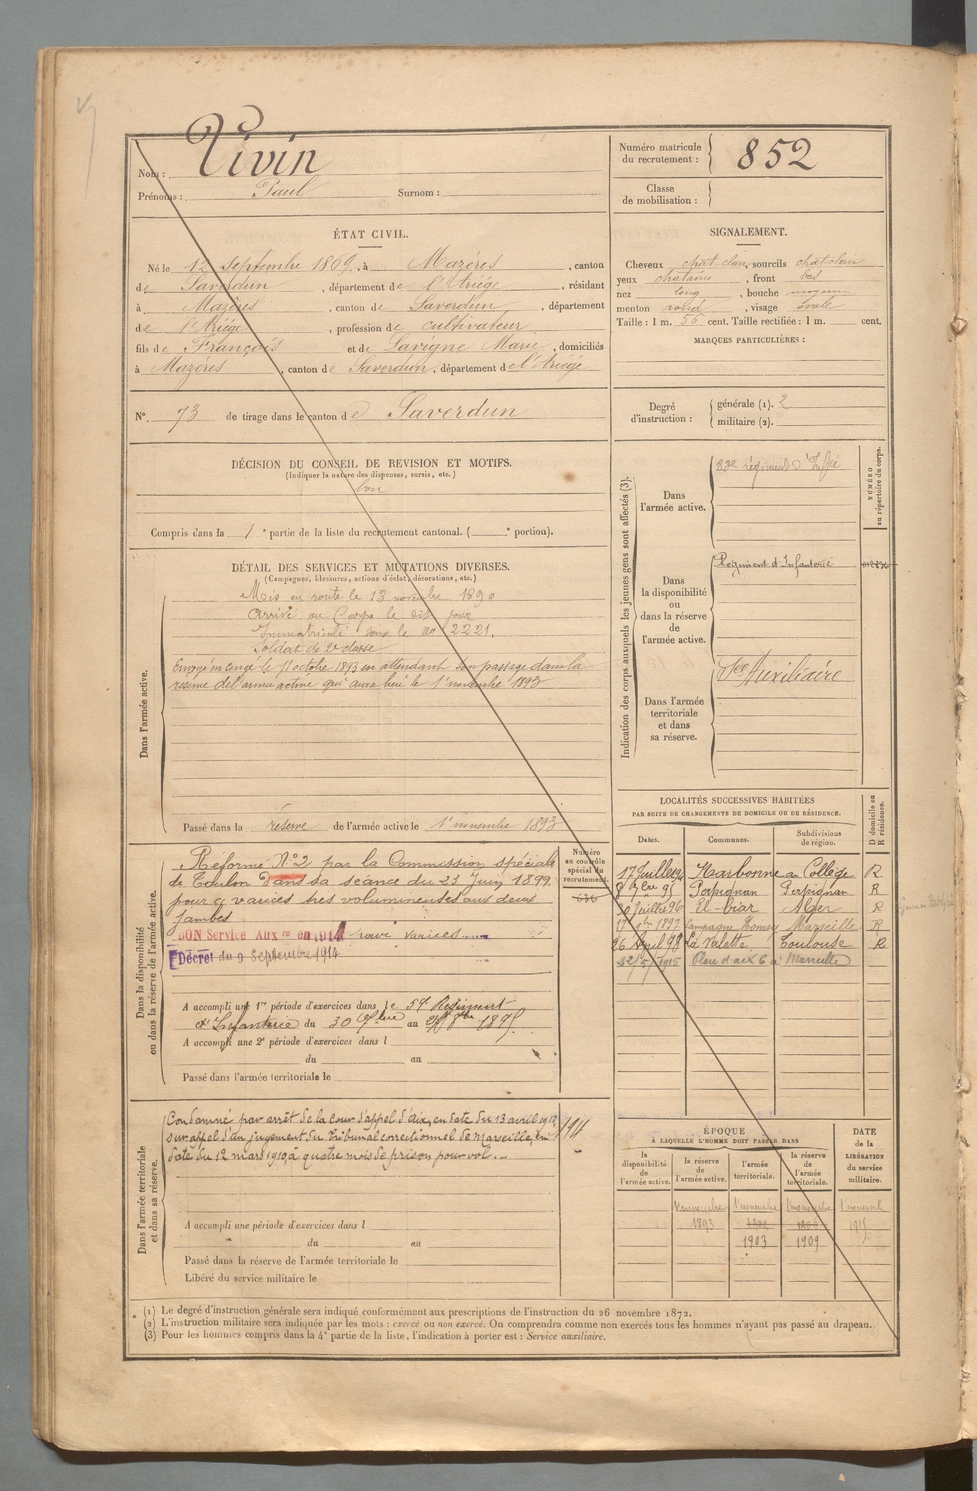 Nom : Vivin
Prénoms : Paul Surnom :
Numéro matricule du recrutement : 852
Classe de mobilisation :
ÉTAT CIVIL.
Né le 12 septembre 1869, à Mazères, canton
de Saverdun, département de l'Ariège, résidant
à Mazères, canton de Saverdun, département
de l'Ariège, profession de cultivateur
fils de François et de Lavigne Marie, domiciliés
à Mazères, canton de Saverdun, département de l'Ariège
SIGNALEMENT.
Cheveux chat-clair, sourcils chat-clair
yeux chatains, front bas
nez long, bouche moyenne
menton rond, visage ovale
Taille : 1 m. 55 cent. Taille rectifiée : 1 m. cent.
MARQUES PARTICULIÈRES :
N°. 73 de tirage dans le canton de Saverdun
Degré d'instruction : générale (1). 2
militaire (2).
DÉCISION DU CONSEIL DE REVISION ET MOTIFS.
(Indiquer la nature des dispenses, sursis, etc.)
bon
Compris dans la 1e partie de la liste du recrutement cantonal. ( e portion).
DÉTAIL DES SERVICES ET MUTATIONS DIVERSES.
(Campagnes, blessures, actions d'éclat, décorations, etc.)
Dans l'armée active.
Mis en route le 13 novembre 1890
Arrivé au Corps le dit jour
Immatriculé sous le no 2221.
Soldat de 2e classe
Envoyé en congé le 11 octobre 1893 en attendant son passage dans la
réserve de l'armée active qui aura lieu le 1er novembre 1893
Passé dans la réserve de l'armée active le 1er novembre 1893
Indication des corps auxquels les jeunes gens sont affectés (3).
NUMÉRO au répertoire du corps.
Dans l'armée active.
83e régiment d'Inf
Dans la disponibilité ou dans la réserve de l'armée active.
Régiment d'Infanterie
Dans l'armée territoriale et dans sa réserve.
Sce Auxiliaire
Dans la disponibilité ou dans la réserve de l'armée active.
Numéro au contrôle spécial du recrutement.
Réformé No 2 par la Commission spéciale
de Toulon dans sa séance du 23 Juin 1899
pour varices très volumineuses aux deux
jambes
BON Service Auxce en 1914 varices
Décret du 9 Septembre 1914
A accompli une 1re période d'exercices dans le 57 Régiment
d'Infanterie du 30 au 1895
A accompli une 2e période d'exercices dans l
du au
Passé dans l'armée territoriale le
LOCALITÉS SUCCESSIVES HABITÉES
PAR SUITE DE CHANGEMENTS DE DOMICILE OU DE RÉSIDENCE.
D domicile ou R résidence.
Dates. Communes. Subdivisions de région.
17 Juillet 94 Narbonne au Collège R
8 95 Perpignan Perpignan R
20 Juillet 96 El-biar Alger R
1897 Marseille R
26 Avril 98 La Valette Toulouse R
22/5/1915 Place d'aix 6 à Marseille
Dans l'armée territoriale et dans sa réserve.
Condamné par arrêt de la cour d'appel d'Aix, en date du 13 avril 1912,
sur appel d'un jugement du Tribunal correctionnel de Marseille, en
date du 12 mars 1912 à quatre mois de prison pour vol. -
A accompli une période d'exercices dans l
du au
Passé dans la réserve de l'armée territoriale le
Libéré du service militaire le
ÉPOQUE
À LAQUELLE L'HOMME DOIT PASSER DANS
la disponibilité de l'armée active.
la réserve de l'armée active.
l'armée territoriale.
la réserve de l'armée territoriale.
DATE de la LIBÉRATION du service militaire.
1 novembre 1 novembre 1 novembre 1 novembre
1893 1915
1903 1909
(1) Le degré d'instruction générale sera indiqué conformément aux prescriptions de l'instruction du 26 novembre 1872.
(2) L'instruction militaire sera indiquée par les mots : exercé ou non exercé. On comprendra comme non exercés tous les hommes n'ayant pas passé au drapeau.
(3) Pour les hommes compris dans la 4e partie de la liste, l'indication à porter est : Service auxiliaire.